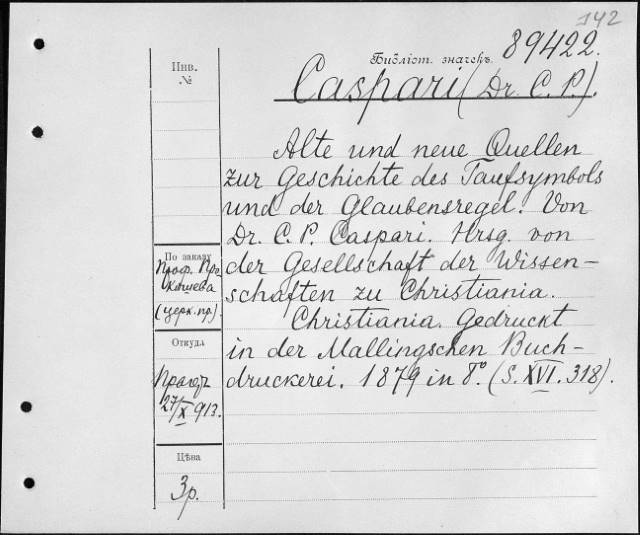 142
Библіот. значекъ 89422.
Инв.
№
Caspari (Dr. C. P.).
Alte und neue Quellen
zur Geschichte des Taufsymbols
und der Glaubensregel. Von
Dr. C. P. Caspari. Hrsg. von
der Gesellschaft der Wissen-
schaften zu Christiania.
Christiania. Gedruckt
in der Mallingschen Buch-
druckerei. 1879 in 8°. (S. XVI. 318).
По заказу
Проф.
(церк. пр.)
Откуда
27/X 913.
Цѣна
3р.